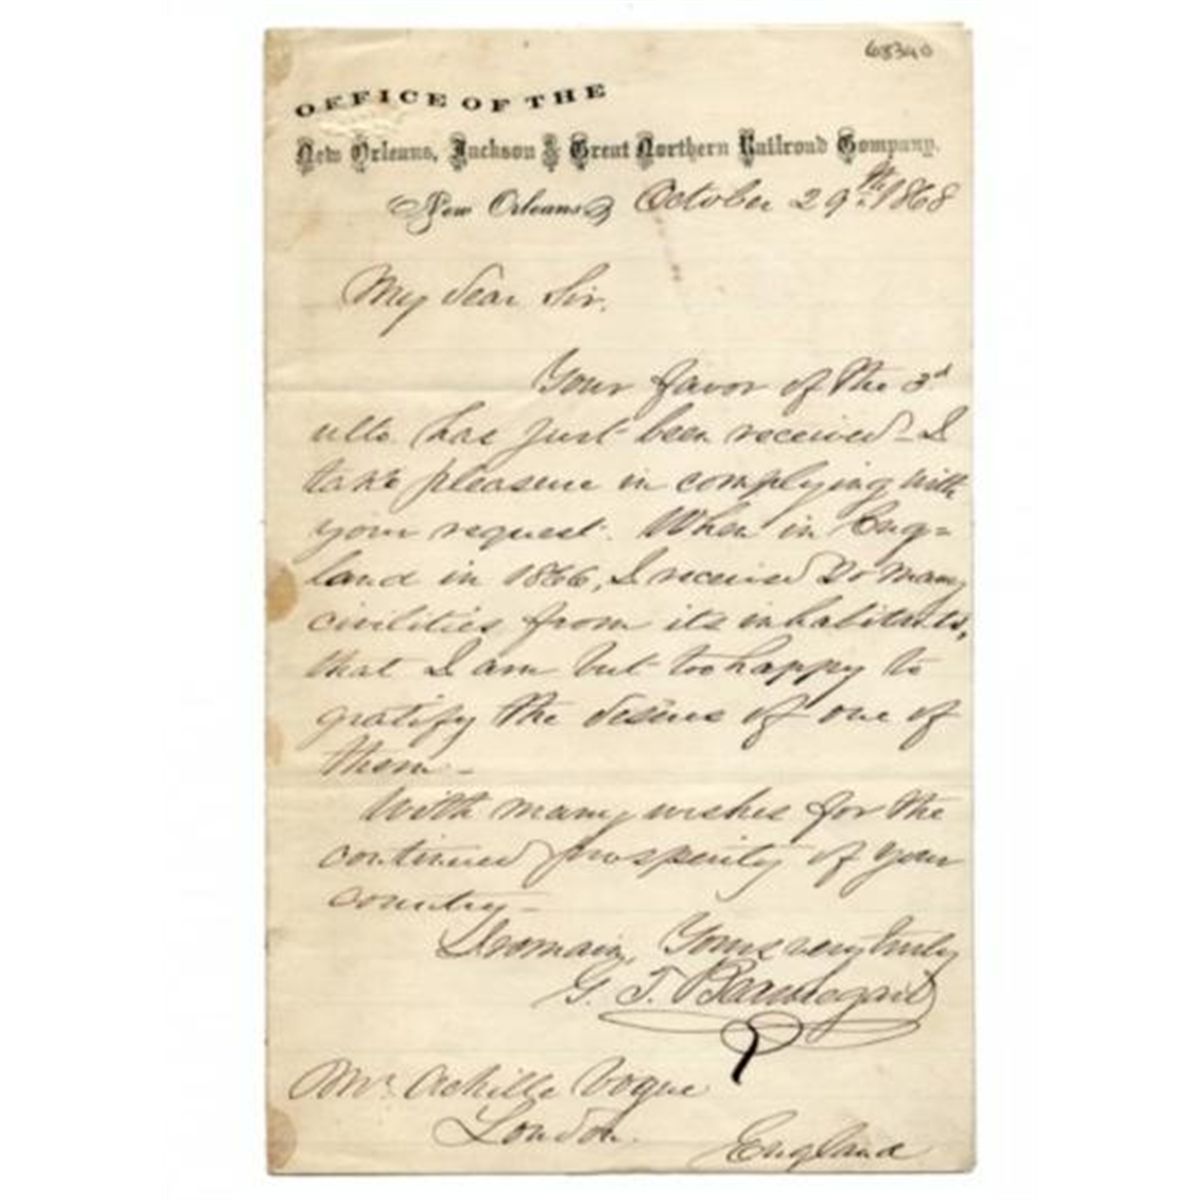 68340
OFFICE OF THE
New Orleans, Jackson & Great Northern Railroad Company.
New Orleans, October 29th 1868
My dear Sir.
Your favor of the 3d
ulto. has just been received - I
take pleasure in complying with
your request. When in Eng=
land in 1866, I received so many
civilities from its inhabitants,
that I am but too happy to
gratify the desires of one of
them -
With many wishes for the
continued prosperity of your
country -
I remain, Yours very truly
G. T. Beauregard
Mr. Achille Vogue
London.
England